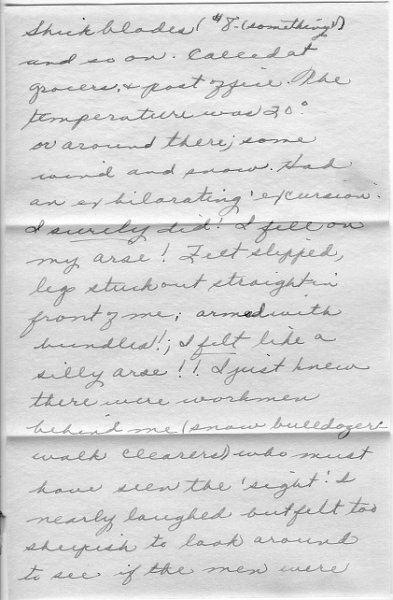 Shick blades ( $8- (something!)
and so on. Called at
grocers, & post office. The
temperature was 20°
or around there; some
wind and snow. Had
an exhilarating 'excursion'.
I surely did! I fell on
my arse! Feet slipped,
legs stuck out straight in
front of me; armed with
bundles!; I felt like a
silly arse!! I just knew
there were workmen
behind me (snow bulldozers
walk clearers) who must
have seen the 'sight'. I
nearly laughed but felt too
sheepish to look around
to see if the men were